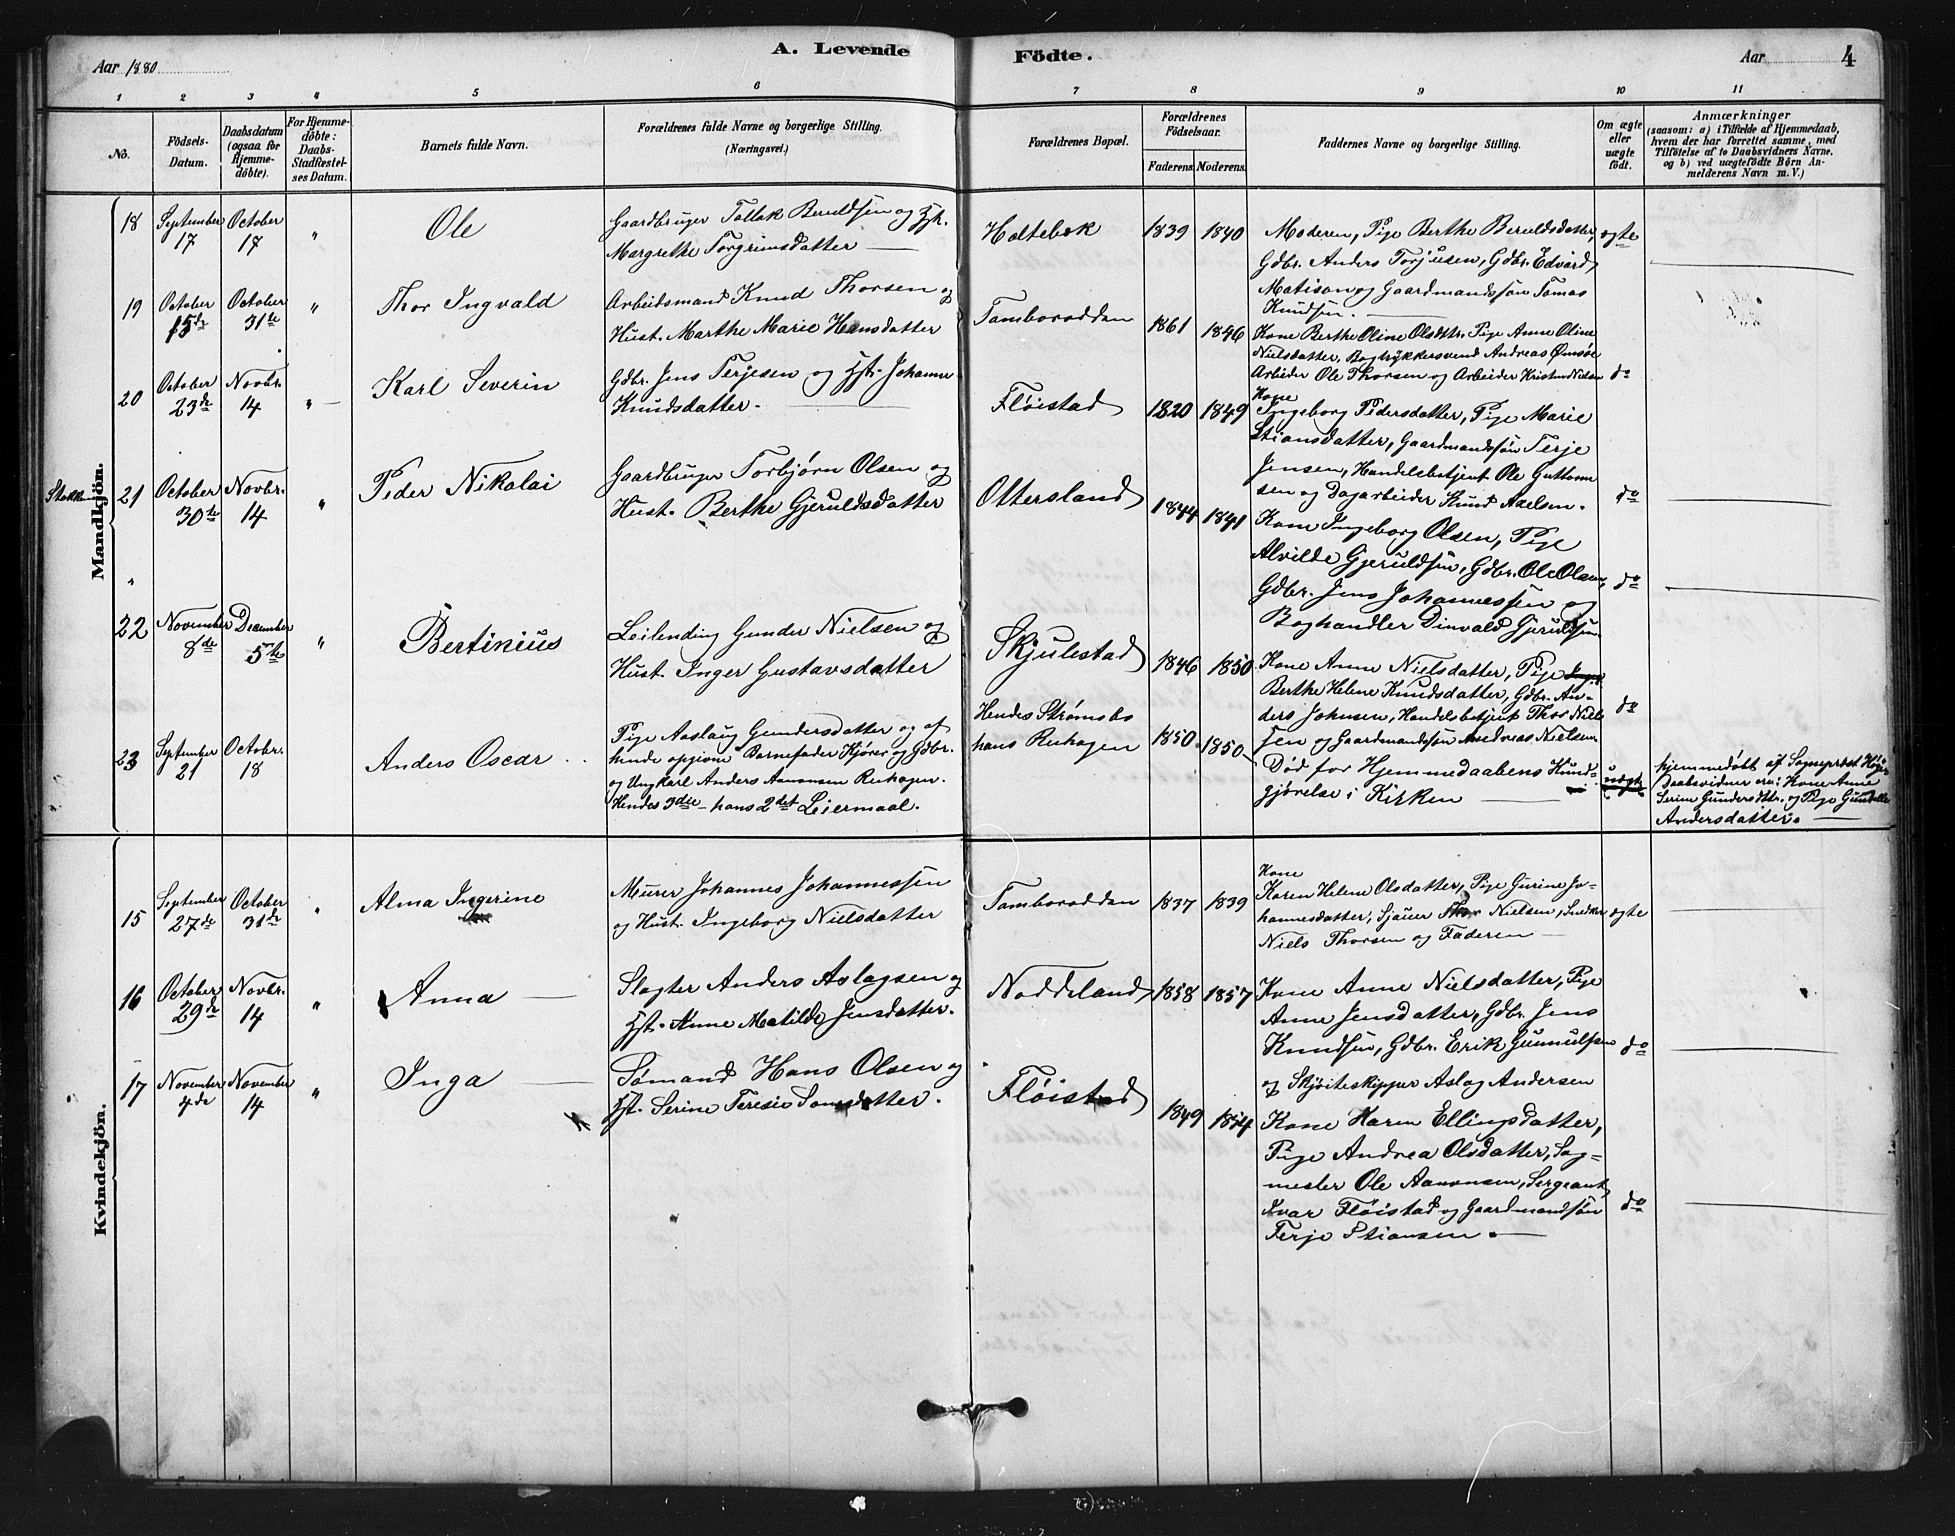 A. Levende Födte.
Aar 1880
Aar 4
1 2 3 4 5 6 7 8 9 10 11
No.
Födsels-Datum.
Daabsdatum (ogsaa for Hjemme-döbte).
For Hjemme-döbte: Daabs-Stadfæstel-ses Datum.
Barnets fulde Navn.
Forældrenes fulde Navne og borgerlige Stilling. (Næringsvei.)
Forældrenes Bopæl.
Forældrenes Födselsaar.
Faderens. Moderens.
Faddernes Navne og borgerlige Stilling.
Om ægte eller uægte födt.
Anmærkninger
(saasom: a) i Tilfælde af Hjemmedaab,
hvem der har forrettet samme, med
Tilföielse af to Daabsvidners Navne.
og b) ved uægtefödte Börn An-
melderens Navn m. V.)
Mandkjön.
18 September 17 October 17 "
Ole
Gaardbruger Tallak Beruldsen og Hst.
Margrethe Torgrimsdatter
Holtebek
1839 1840
Moderen, Pige Berthe Beruldsdatter,
Gdbr. Anders Torjusen, Gdbr. Edvard
Matison og Gaardmandssøn Tomas
Knudsen.
ægte
19 October 15de October 31te "
Thor Ingvald
Arbeidsmand Knud Thorsen og
Hust. Marthe Marie Hansdatter
Tamborodden
1861 1846
Kone Berthe Oline Olsdtr. Pige Anne Oline
Nielsdatter, Bogtrykkersvend Andreas Omsøe
Arbeider Ole Thorsen og Arbeider Kristen Nielsen
do
20 October 23de Novbr. 14 "
Karl Severin
Gdbr. Jens Terjesen og Hst. Johanne
Knudsdatter.
Fløistad
1820 1849
Kone
Ingeborg Pedersdatter, Pige Marie
Stiansdatter, Gaardmandssøn Terje
Jensen, Handelsbetjent Ole Guttorm
sen og Dagarbeider Knud Axelsen.
do
21 October 30te Novbr. 14 "
Peder Nikolai
Gaardbruger Torbjørn Olsen og
Hust. Berthe Gjeruldsdatter
Ottersland
1844 1841
Kone Ingeborg Olsen, Pige
Alvilde Gjeruldsen, Gdbr. Ole Olsen,
Gdbr. Jens Johannessen og
Boghandler Dinvald Gjeruldsen.
do
22 November 8de December 5te "
Bertinius
Leilending Gunder Nielsen og
Hust. Inger Gustavsdatter
Skjulestad
1846 1850
Kone Anne Nielsdatter, Pige
Berthe Helene Knudsdatter, Gdbr. An-
ders Johnsen, Handelsbetjent Thor Niel
sen og Gaardmandssøn Andreas Nielsen
do
23 September 21 Octobr. 18
Anders Oscar
Pige Aaslaug Gundersdatter og af
hende opgivne Barnefader Kjører og Gdbr.
og Ungkarl Anders Aanonsen Ruhagen.
Hendes 3die - hans 2det Leiermaal.
Hendes Strømsbo
hans Ruhagen
1850. 1850
Død før Hjemmedaabens Kund-
gjørelse i Kirken
uægte
hjemmedøbt af Sogneprest
Daabsvidner ere: Kone Anne
Serine Gundersdtr. og Pige
Andersdatter.
Kvindekjön.
15 September 27de October 31de "
Alma Ingerine
Murer Johannes Johannessen
og Hust. Ingeborg Nielsdatter
Tamborodden
1837 1839
Kone
Karen Helene Olsdatter, Pige Gurine Jo-
hannesdatter, Sjauer Thor Nielsen, Snedker
Niels Thorsen og Faderen
ægte
16 October 29de Novbr. 14 "
Anna
Slagter Anders Aslagsen og
Hst. Anne Matilde Jensdatter.
Noddeland
1858 1857
Kone Anne Nielsdatter, Pige
Anne Jensdatter, Gdbr. Jens
Knudsen, Gdbr. Erik Gunnulfsen
og Skjøiteskipper Aslag Andersen
do
17 November 4de November 14 "
Inga
Sømand Hans Olsen og
Hst. Serine Teresie
Fløistad
1849 1854
Kone Karen Ellingsdatter,
Pige Andrea Olsdatter, Sag-
mester Ole Aanonsen, Sergeant
Ivar Fløistad og Gaardmandssøn
Terje Stiansen.
do